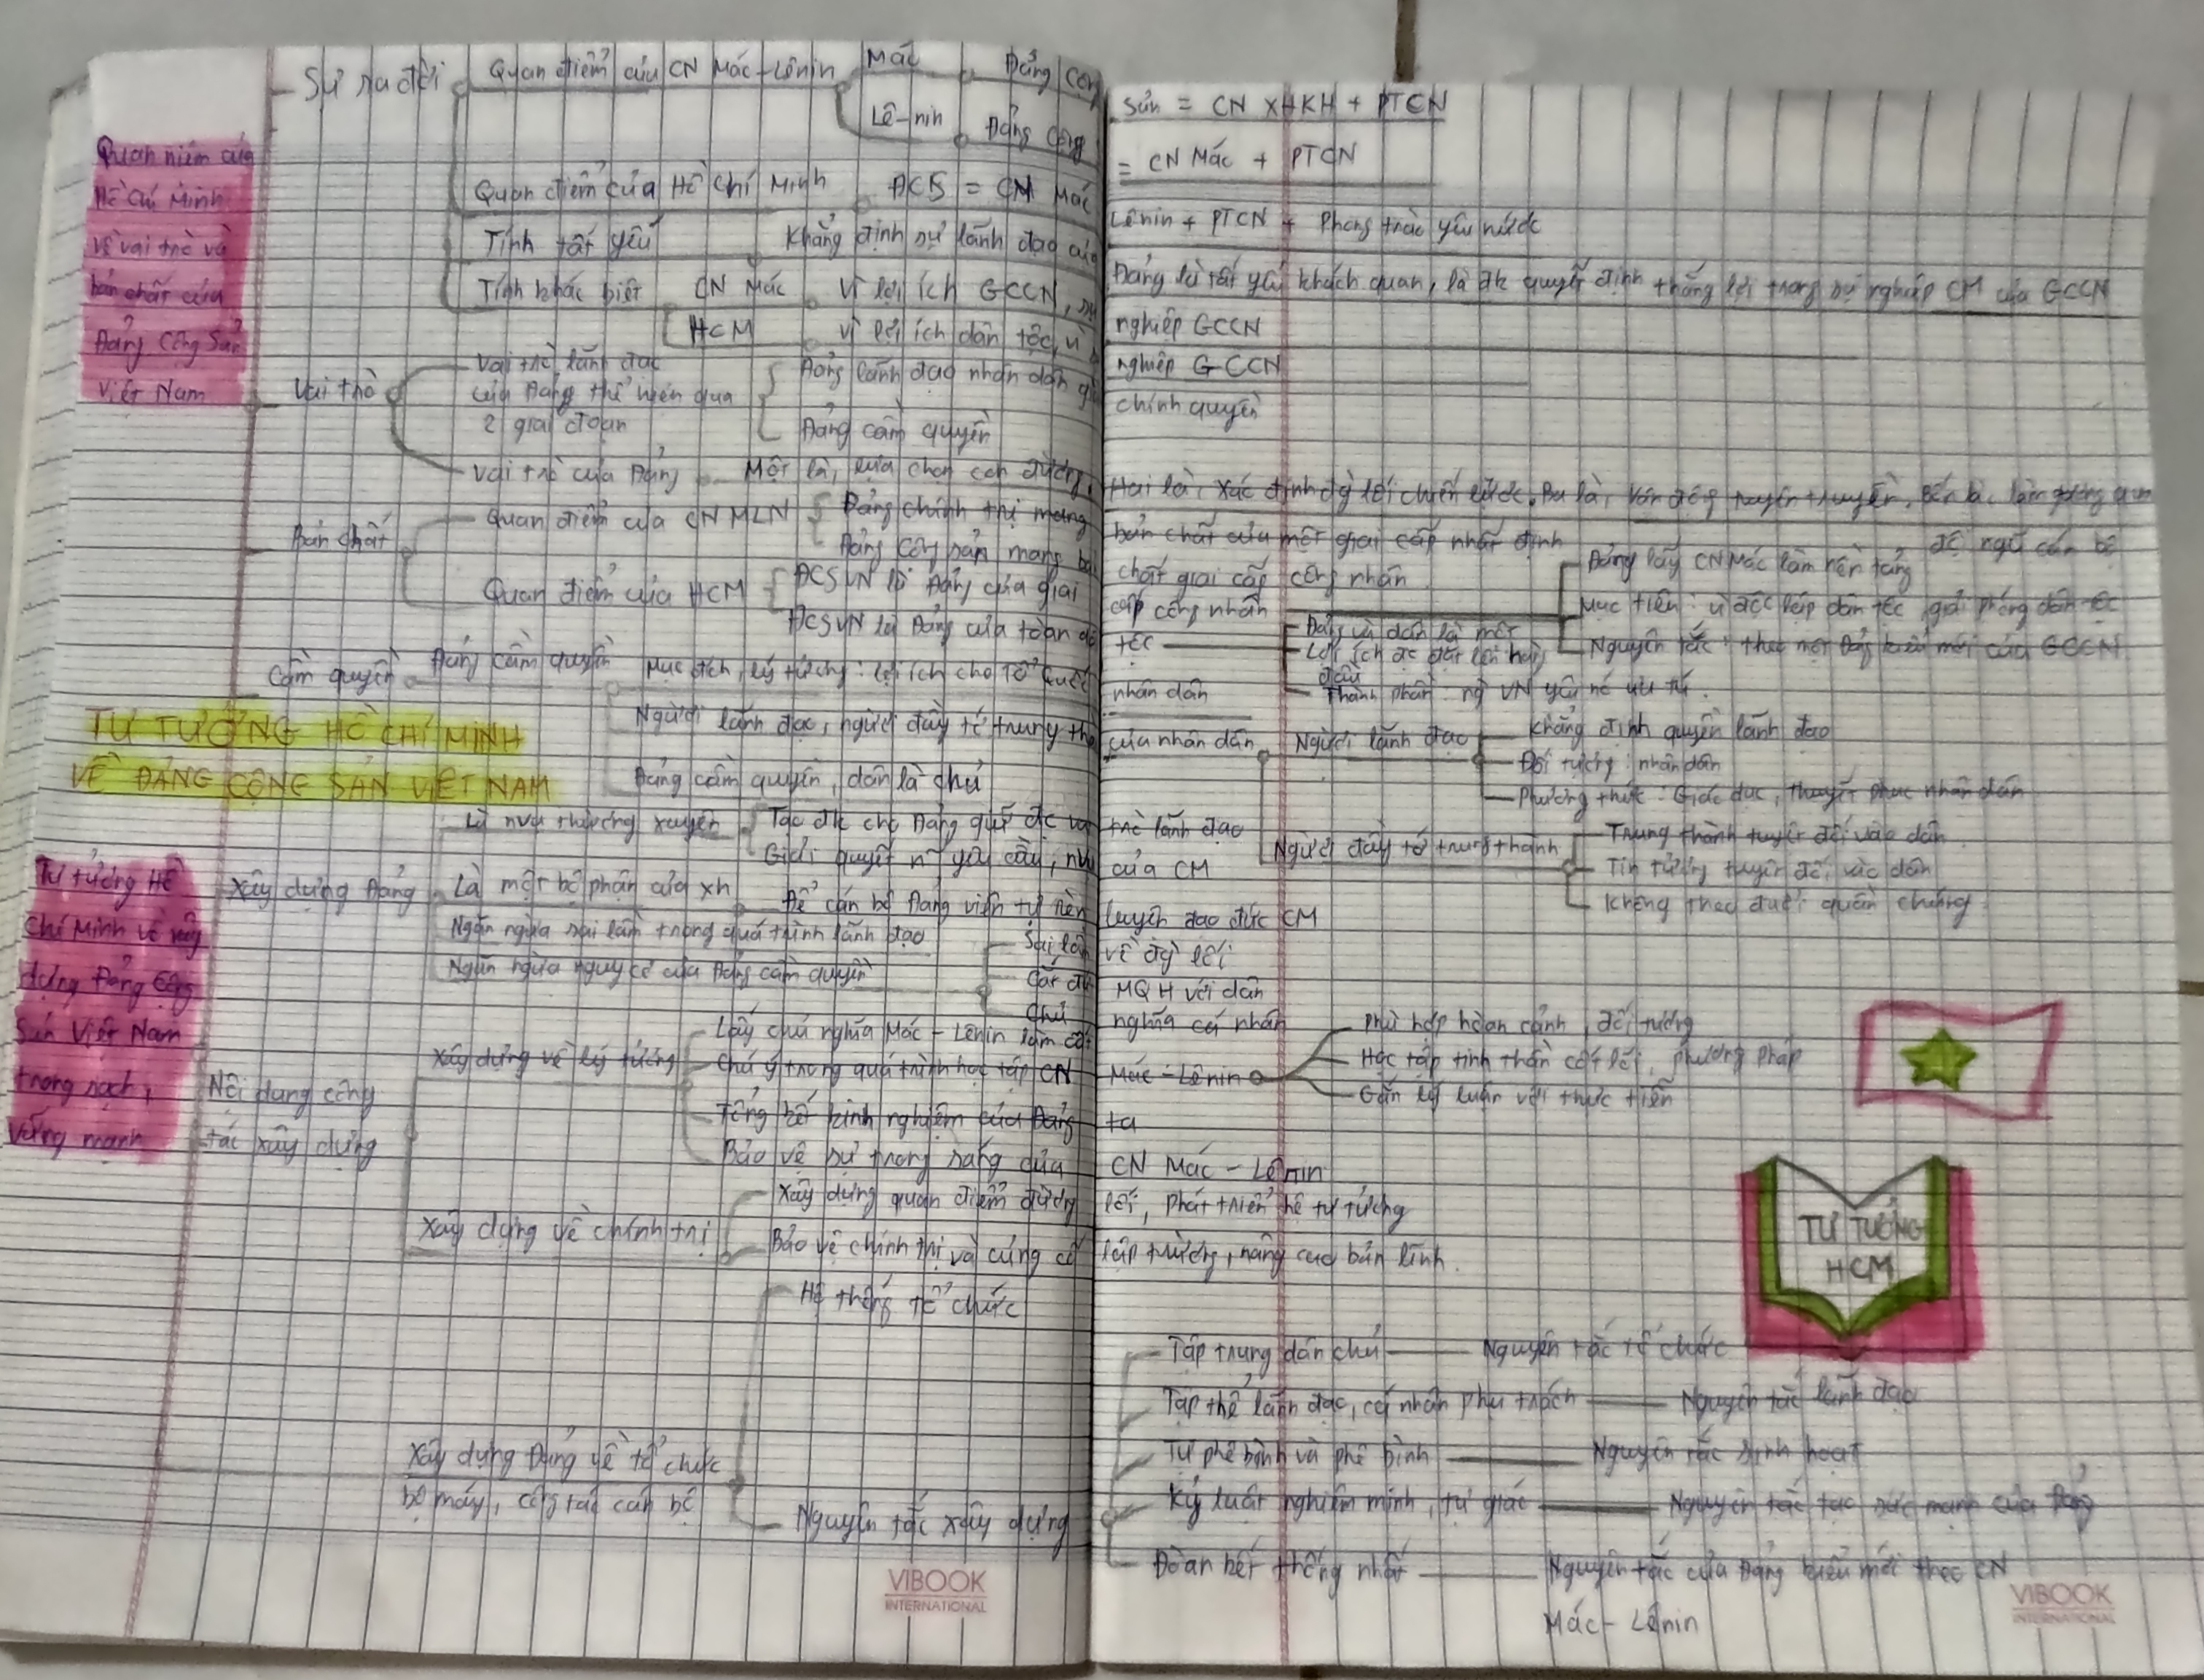 Sự ra đời
Quan điểm của CN Mác-Lênin
Mác
Đảng Cộng Sản = CN XHKH + PTCN
Lê-nin
Đảng Cộng = CN Mác + PTCN
Quan điểm của Hồ Chí Minh
ĐCS = CN Mác Lênin + PTCN + Phong trào yêu nước
Tính tất yếu
Khẳng định sự lãnh đạo của Đảng là tất yếu khách quan, là đk quyết định thắng lợi trong sự nghiệp CM của GCCN
Tính khác biệt
CN Mác
Vì lợi ích GCCN, sự nghiệp GCCN
HCM
vì lợi ích dân tộc, vì nghiệp GCCN
Quan niệm của
Hồ Chí Minh
về vai trò và
bản chất của
Đảng Cộng Sản
Việt Nam
Vai trò
Vai trò lãnh đạo
của Đảng thể hiện qua
2 giai đoạn
Đảng lãnh đạo nhân dân giành chính quyền
Đảng cầm quyền
Vai trò của Đảng
Một là, lựa chọn con đường, Hai là, Xác định đg lối chiến lược. Ba là, vận động tuyên truyền, Bốn là, làm gương
đội ngũ cán bộ
Bản chất
Quan điểm của CN MLN
Đảng chính trị mang bản chất của một giai cấp nhất định
Đảng cộng sản mang bản chất giai cấp công nhân
Quan điểm của HCM
ĐCSVN là Đảng của giai cấp công nhân
Đảng lấy CN Mác làm nền tảng
Mục tiêu: vì độc lập dân tộc, giải phóng dân tộc
Nguyên tắc: theo một Đảng kiểu mới của GCCN
ĐCSVN là Đảng của toàn dân tộc
Đảng và dân là một
Lợi ích đc đặt lên hàng
đầu
Thành phần: ng VN yêu nc ưu tú.
Cầm quyền
Đảng cầm quyền
Mục đích, lý tưởng: lợi ích cho Tổ Quốc nhân dân
Người lãnh đạo, người đầy tớ trung thành của nhân dân
Người lãnh đạo
Khẳng định quyền lãnh đạo
Đối tượng: nhân dân
Phương thức: Giáo dục, thuyết phục nhân dân
Người đầy tớ trung thành
Trung thành tuyệt đối vào dân
Tin tưởng tuyệt đối vào dân
Không theo đuôi quần chúng
Đảng cầm quyền, dân là chủ
TƯ TƯỞNG HỒ CHÍ MINH
VỀ ĐẢNG CỘNG SẢN VIỆT NAM
Tư tưởng Hồ
Chí Minh về xây
dựng Đảng Cộng
Sản Việt Nam
trong sạch,
vững mạnh
Xây dựng Đảng
Là nvụ thường xuyên
Tạo đk cho Đảng giữ đc vai trò lãnh đạo
Giải quyết n~ yêu cầu, nvụ của CM
Là một bộ phận của xh
Để cán bộ Đảng viên tự rèn luyện đạo đức CM
Ngăn ngừa sai lầm trong quá trình lãnh đạo
Ngăn ngừa nguy cơ của Đảng cầm quyền
Sai lầm về đg lối
Cắt đứt MQH với dân
Chủ nghĩa cá nhân
Nội dung công
tác xây dựng
Xây dựng về lý tưởng
Lấy chủ nghĩa Mác - Lênin làm cốt
Chú ý trong quá trình học tập CN Mác-Lênin
Phù hợp hoàn cảnh, đối tượng
Học tập tinh thần cốt lõi, phương pháp
Gắn lý luận với thực tiễn
Tổng kết kinh nghiệm của Đảng ta
Bảo vệ sự trong sáng của CN Mác - Lênin
Xây dựng về chính trị
Xây dựng quan điểm đường lối, phát triển hệ tư tưởng
Bảo vệ chính trị và củng cố lập trường, nâng cao bản lĩnh.
TƯ TƯỞNG
HCM
Xây dựng Đảng về tổ chức
bộ máy, công tác cán bộ
Hệ thống tổ chức
Nguyên tắc xây dựng
Tập trung dân chủ
Nguyên tắc tổ chức
Tập thể lãnh đạo, cá nhân phụ trách
Nguyên tắc lãnh đạo
Tự phê bình và phê bình
Nguyên tắc sinh hoạt
Kỷ luật nghiêm minh, tự giác
Nguyên tắc tạo sức mạnh của Đảng
Đoàn kết thống nhất
Nguyên tắc của Đảng kiểu mới theo CN
Mác - Lênin
VIBOOK
INTERNATIONAL
VIBOOK
INTERNATIONAL